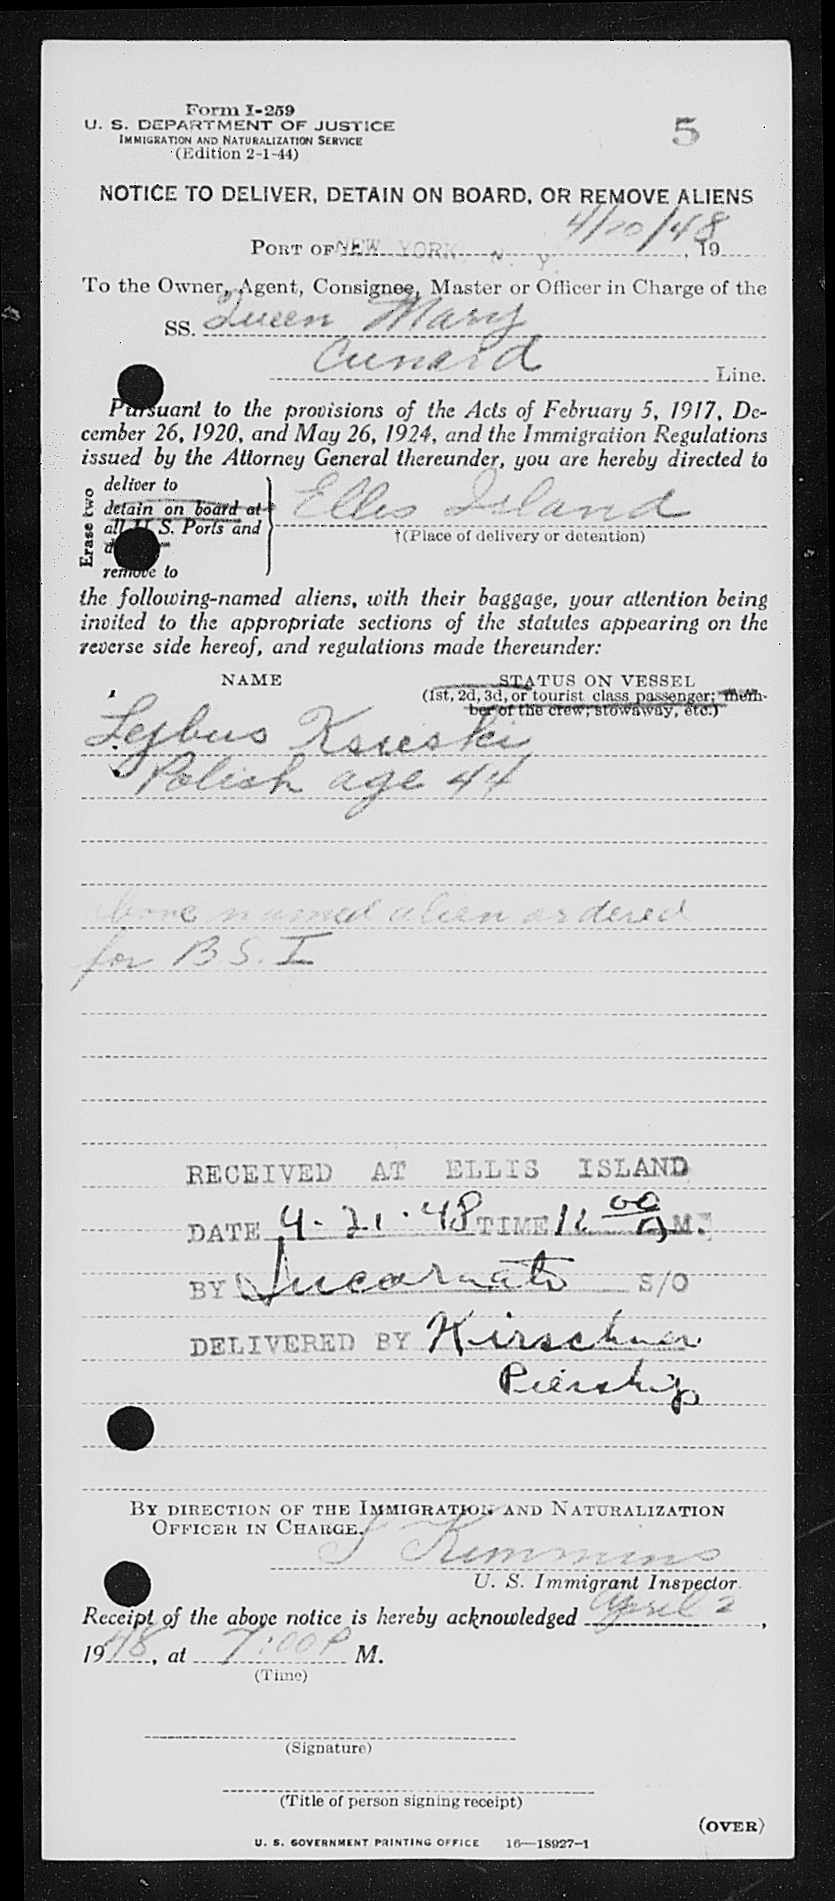 Form I-259
U. S. DEPARTMENT OF JUSTICE
IMMIGRATION AND NATURALIZATION SERVICE
(Edition 2-1-44)
5
NOTICE TO DELIVER, DETAIN ON BOARD, OR REMOVE ALIENS
4/20/48
PORT OF NEW YORK, N. Y., 19
To the Owner, Agent, Consignee, Master or Officer in Charge of the
SS. Queen Mary
Cunard Line.
Pursuant to the provisions of the Acts of February 5, 1917, De-
cember 26, 1920, and May 26, 1924, and the Immigration Regulations
issued by the Attorney General thereunder, you are hereby directed to
Erase two
deliver to
detain on board at
all U. S. Ports and
remove to
Ellis Island
†(Place of delivery or detention)
the following-named aliens, with their baggage, your attention being
invited to the appropriate sections of the statutes appearing on the
reverse side hereof, and regulations made thereunder:
NAME
STATUS ON VESSEL
(1st, 2d, 3d, or tourist class passenger; mem-
ber of the crew; stowaway, etc.)
Lejbus Ksieski
Polish age 44
above named alien ordered
for B S. I
RECEIVED AT ELLIS ISLAND
DATE 4-21-48 TIME 12 00 A M.
BY Incarnato S/O
DELIVERED BY Kirschner
BY DIRECTION OF THE IMMIGRATION AND NATURALIZATION
OFFICER IN CHARGE.
Kimmins
U. S. Immigrant Inspector.
Receipt of the above notice is hereby acknowledged April 2,
1948, at 7:00 P M.
(Time)
(Signature)
(Title of person signing receipt)
(OVER)
U. S. GOVERNMENT PRINTING OFFICE 16—18927-1